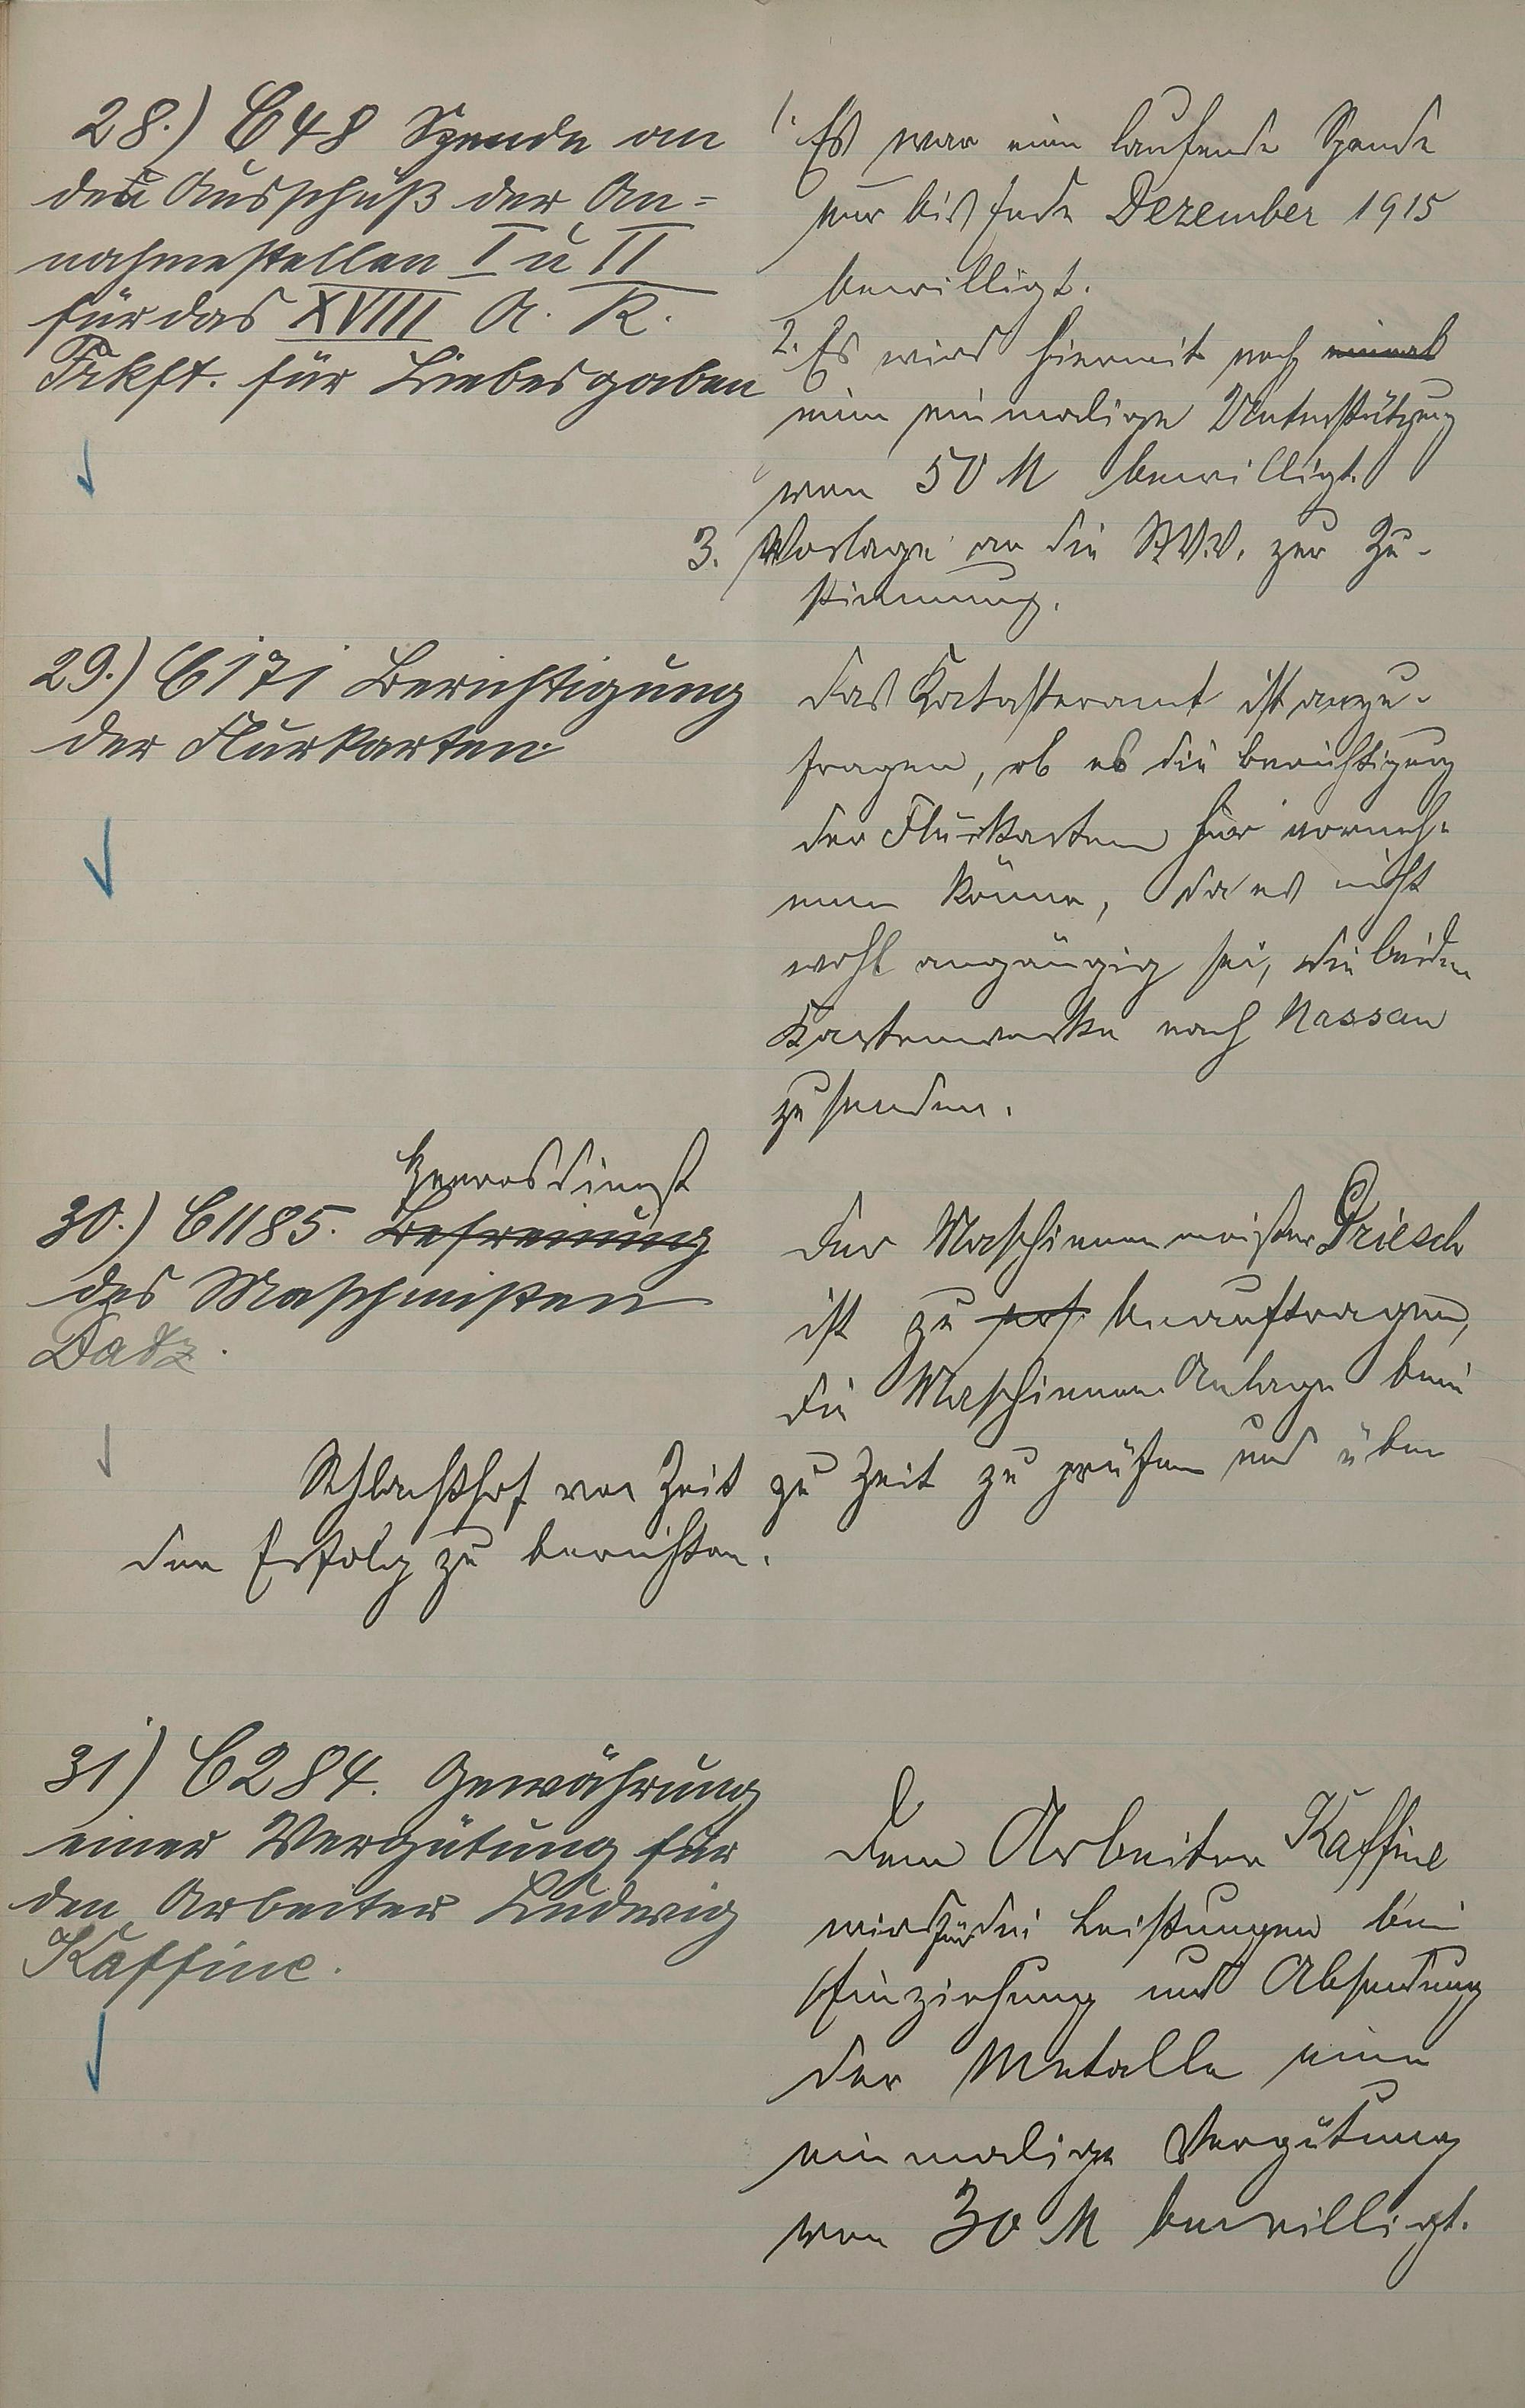 28.) C 48 Spende an
den Ausschuß der An-
nahmestellen I u II
für das XVIII A. K.
Frkft. für Liebesgaben
1. Es war eine laufende Spende
nur bis Ende Dezember 1915
bewilligt.
2. Es wird hiermit noch einmal
eine einmalige Unterstützung
von 50 M bewilligt.
3. Vorlage an die St.V.V. zur Zu-
stimmung.
29.) C 171 Berichtigung
der Flurkarten
Das Katasteramt ist anzu-
fragen, ob es die Berichtigung
der Flurkarten hier vorneh-
men könne, da es nicht
wohl angängig sei, die beiden
Kartenwerke nach Nassau
zu senden.
Heeresdienst
30.) C 1185. Befreiung
des Maschinisten
Datz.
Der Maschinenmeister Griesch
ist zu beauftragen,
die Maschinen Anlage beim
Schlachthof von Zeit zu Zeit zu prüfen und über
den Erfolg zu berichten.
31) C 284. Gewährung
einer Vergütung für
den Arbeiter Ludwig
Kaffine.
Dem Arbeiter Kaffine
wird für die Leistungen bei
Einziehung und Absendung
der Metalle eine
einmalige Vergütung
von 30 M bewilligt.